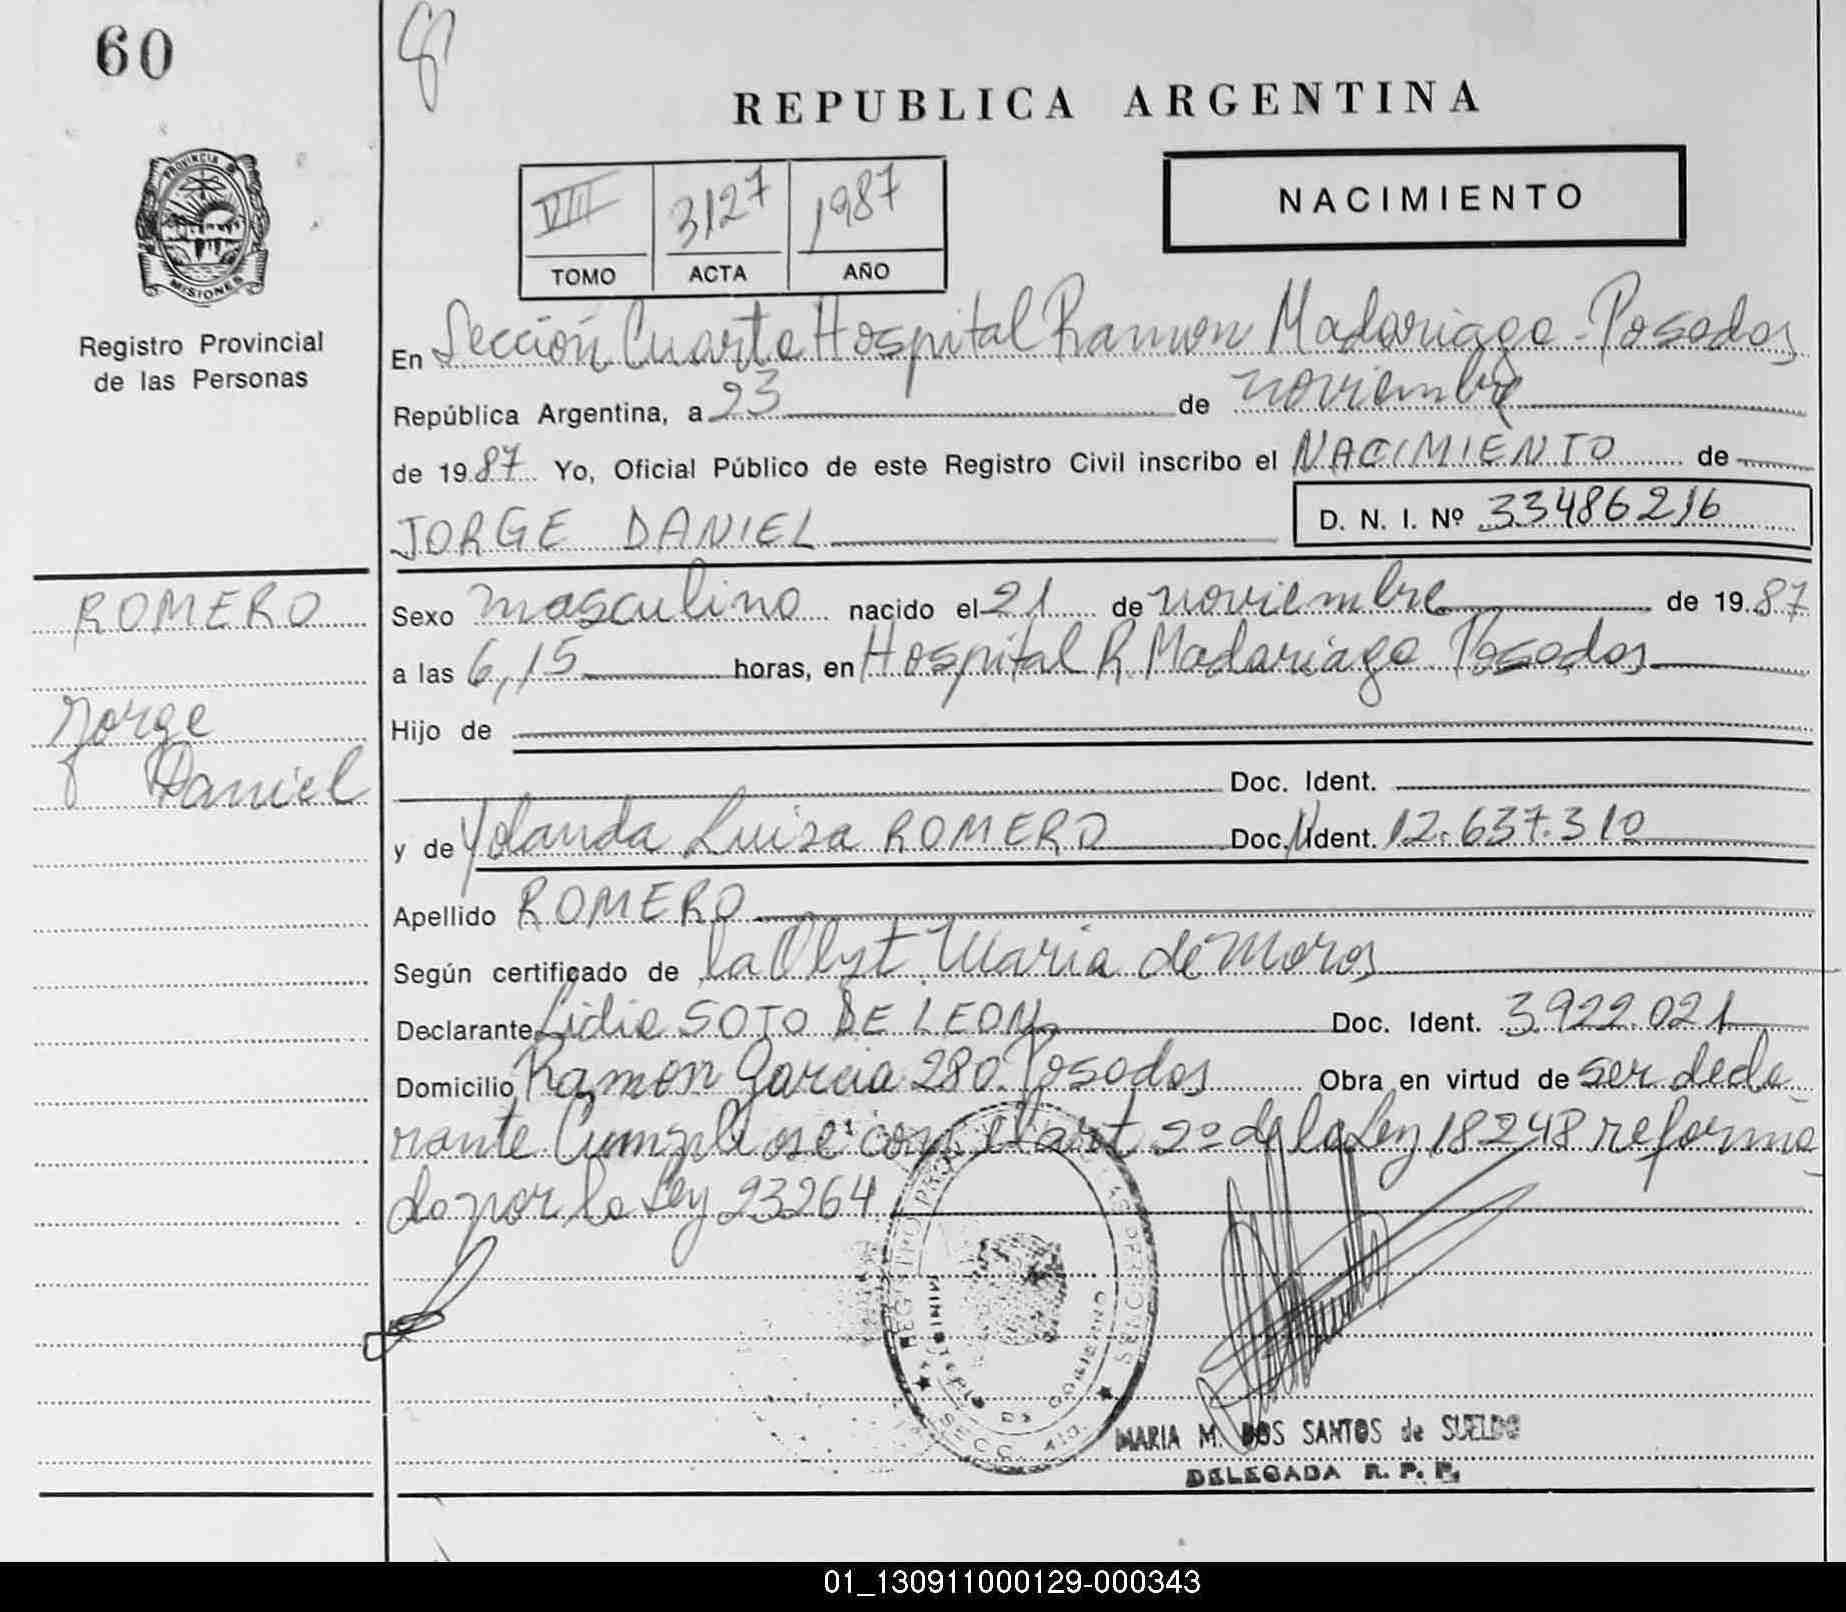 60
REPUBLICA ARGENTINA
VIII 3127 1987
TOMO ACTA AÑO
NACIMIENTO
PROVINCIA DE
MISIONES
Registro Provincial
de las Personas
En Sección Cuarta Hospital Ramon Madariaga - Posadas
República Argentina, a 23 de noviembre
de 1987 Yo, Oficial Público de este Registro Civil inscribo el NACIMIENTO de
JORGE DANIEL D. N. I. Nº 33486216
ROMERO
Jorge
Daniel
Sexo masculino nacido el 21 de noviembre de 1987
a las 6,15 horas, en Hospital R Madariaga Posadas
Hijo de
Doc. Ident.
y de Yolanda Luisa ROMERO Doc. Ident. 12.637.310
Apellido ROMERO
Según certificado de la Obst Maria de Moros
Declarante Lidia SOTO DE LEON Doc. Ident. 3.922.021
Domicilio Ramon Garcia 280 Posadas Obra en virtud de ser decla
rante. Cumpliose con el art 2º de la Ley 18248 reforma
da por la Ley 23264
REGISTRO PROVINCIAL DE LAS PERSONAS
MINISTERIO DE GOBIERNO
SECC. 4ta.
MARIA M. DOS SANTOS de SUELDO
DELEGADA R. P. P.
01_130911000129-000343